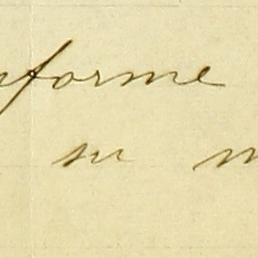 nforme
su m